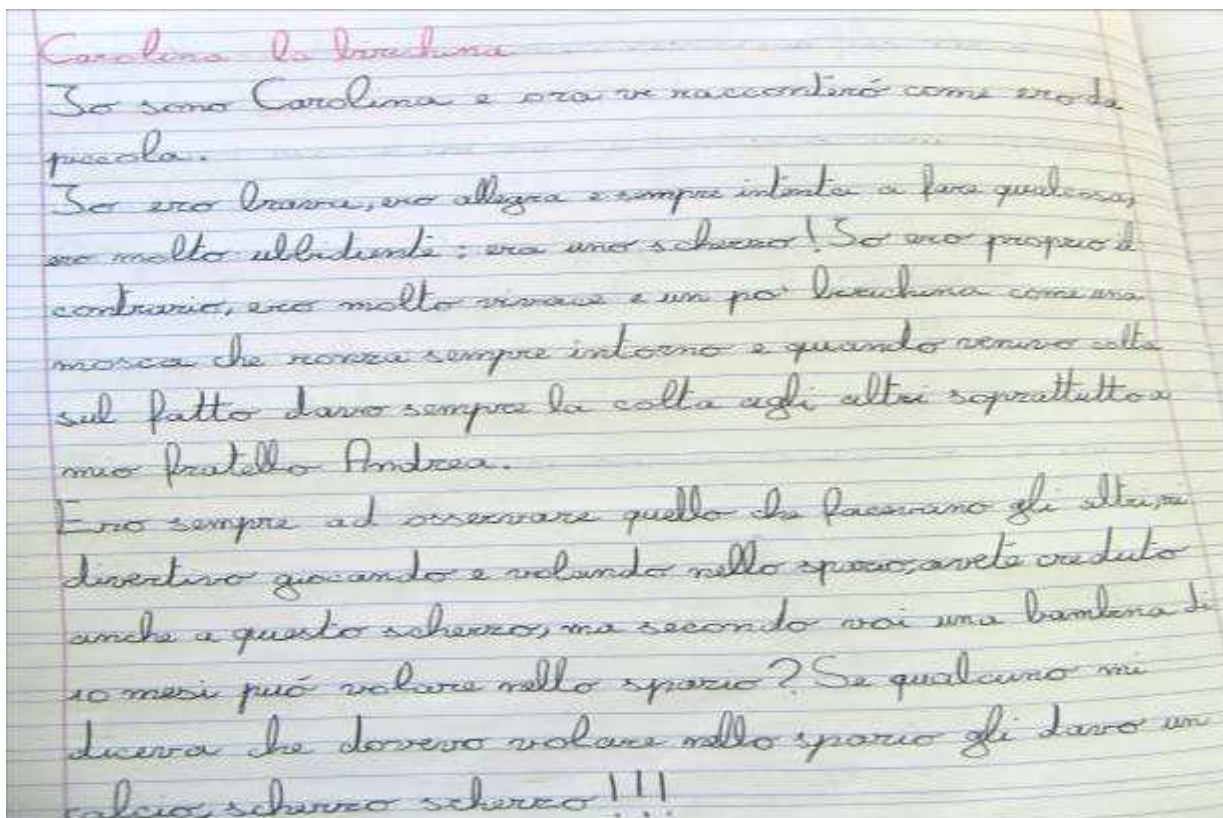 Carolina la birichina
Io sono Carolina e ora vi racconteró come ero da
piccola.
Io ero brava, ero allegra e sempre intenta a fare qualcosa,
ero molto ubbidiente: era uno scherzo! Io ero proprio il
contrario, ero molto vivace e un po' birichina come una
mosca che ronza sempre intorno e quando venivo colta
sul fatto davo sempre la colta agli altri soprattutto a
mio fratello Andrea.
Ero sempre ad osservare quello che facevano gli altri, mi
divertivo giocando e volando nello spazio, avete creduto
anche a questo scherzo, ma secondo voi una bambina di
10 mesi puó volare nello spazio? Se qualcuno mi
diceva che dovevo volare nello spazio gli davo un
calcio, scherzo scherzo!!!